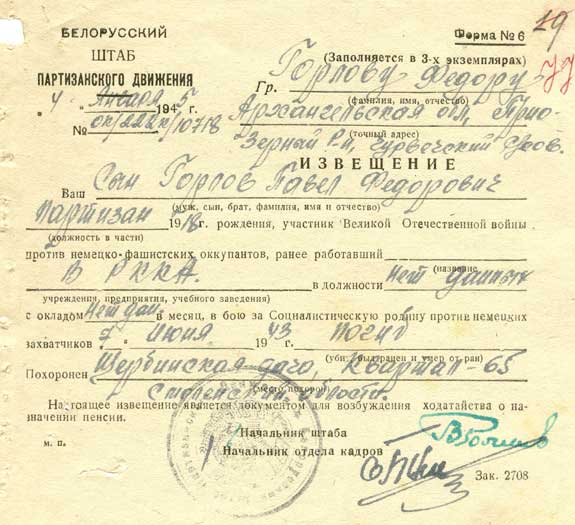 БЕЛОРУССКИЙ
ШТАБ
ПАРТИЗАНСКОГО ДВИЖЕНИЯ
"4" Января 1945 г.
№
Форма № 6
19
(Заполняется в 3-х экземплярах)
Гр. Горлову Федору
(фамилия, имя, отчество)
Архангельская обл,Прио-
(точный адрес)
Зерный Р-н,
ИЗВЕЩЕНИЕ
Ваш Сын Горлов Павел Федорович
(муж, сын, брат, фамилия, имя и отчество)
Партизан 1918 г. рождения, участник Великой Отечественной войны
(должность в части)
против немецко-фашистских оккупантов, ранее работавший
(название
В РККА. в должности Нет данных
учреждения, предприятия, учебного заведения)
с окладом Нет дан в месяц, в бою за Социалистическую родину против немецких
захватчиков 7 Июня 1943 погиб
(убит, был ранен и умер от ран)
Похоронен Щербинская дача, Квартал-65
(место похорон)
Смоленской области.
Настоящее извещение является документом для возбуждения ходатайства о на-
значении пенсии.
м. п.
Начальник штаба
Начальник отдела кадров
Зак. 2708